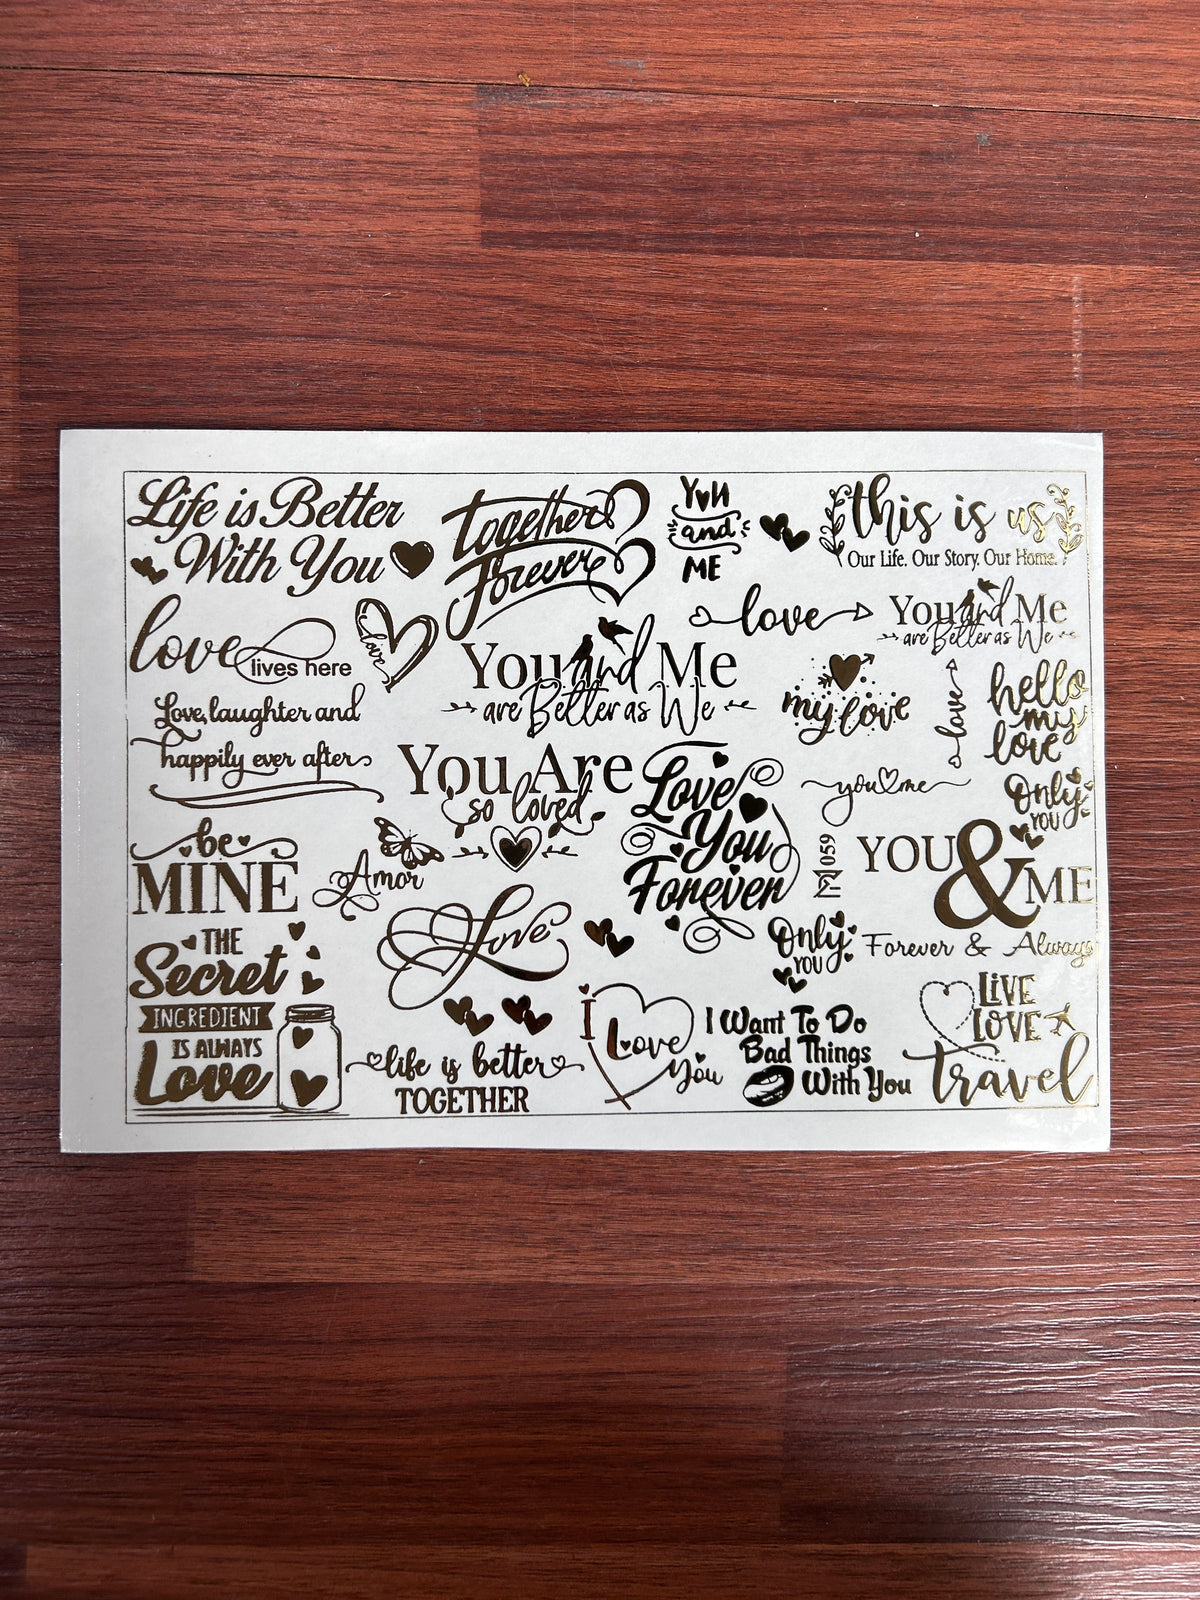 Life is Better
With You
together
Forever
You
and
ME
this is us
Our Life. Our Story. Our Home.
love
lives here
Love
You and Me
are Better as We
love
You and Me
are Better as We
my love
love
hello
my
love
Love, laughter and
happily ever after
You Are
so loved
Love
You
Forever
you me
Only
YOU
be
MINE
Amor
059
YOU & ME
Forever & Always
THE
Secret
INGREDIENT
IS ALWAYS
Love
Love
Only
YOU
life is better
TOGETHER
I
Love
You
I Want To Do
Bad Things
With You
LiVE
LOVE
travel